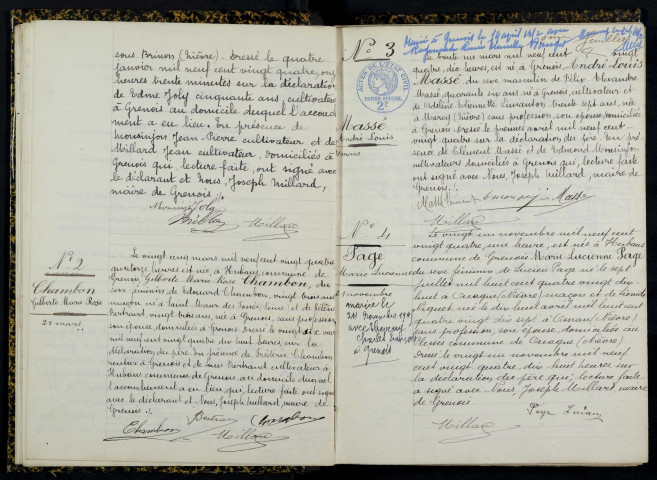 sous Brinon (Nièvre). Dressé le quatre
janvier mil neuf cent vingt quatre, onze
heures trente minutes sur la déclaration
de Edme Joly cinquante ans, cultivateur
à Grenois au domicile duquel l'accouche
ment a eu lieu. En présence de
Jean Pierre cultivateur et de
Millard Jean cultivateur, domiciliés à
Grenois qui, lecture faite, ont signé avec
le déclarant et Nous, Joseph Millard,
maire de Grenois ./.
Joly
Millard
N° 2
Chambon
Gilberte Marie Rose
25 mars
Le vingt cinq mars mil neuf cent vingt quatre
heures est née, à Hubans, commune de
Grenois, Gilberte Marie Rose Chambon, du
sexe féminin de Edouard Chambon, vingt trois ans
maçon né à Saint et de
Bertrand, vingt trois ans, née à Grenois, sans profession,
son épouse domiciliés à Grenois. Dressé le vingt six mars
mil neuf cent vingt quatre dix huit heures sur la
déclaration du père. En présence de Frédéric Chambon
rentier à Grenois et de Bertrand cultivateur à
Hubans commune de Grenois au domicile duquel
l'accouchement a eu lieu, qui, lecture faite ont signé
avec le déclarant et Nous, Joseph Millard, maire de
Grenois ./.
Bertrand Chambon
Chambon Millard
N° 3
Marié à Grenois le 19 avril avec
ACTES DE L'ETAT CIVIL
PAPIER SPECIAL
Massé
André Louis
Le trente un mars mil neuf cent vingt
quatre, dix heures, est né à Grenois, André Louis
Massé, du sexe masculin de Félix Alexandre
Massé quarante six ans né à Grenois, cultivateur et
de Adeline Etiennette trente sept ans, née
à (Nièvre) sans profession, son épouse, domiciliés
à Grenois. Dressé le premier avril mil neuf cent
vingt quatre sur la déclaration du père. En pré
sence de Clément Massé et de Edmond
cultivateurs domiciliés à Grenois qui, lecture faite,
ont signé avec Nous, Joseph Millard, maire de
Grenois ./.
Massé
Millard
N° 4
Page
Marie Lucienne
21 novembre
mariée le
24 novembre
avec
Charles
à Grenois
Le vingt un novembre mil neuf cent
vingt quatre, une heure, est née à Hubans
commune de Grenois Marie Lucienne Page
du sexe féminin de Lucien Page né le sept
juillet mil huit cent quatre vingt dix
huit à (Nièvre) maçon et de
née le dix huit avril mil huit cent
quatre vingt dix sept à Asnan (Nièvre)
sans profession, son épouse domiciliés au
commune de (Nièvre)
Dressé le vingt un novembre mil neuf
cent vingt quatre, dix huit heures sur
la déclaration du père qui, lecture faite
a signé avec Nous, Joseph Millard maire
de Grenois.
Page Lucien
Millard